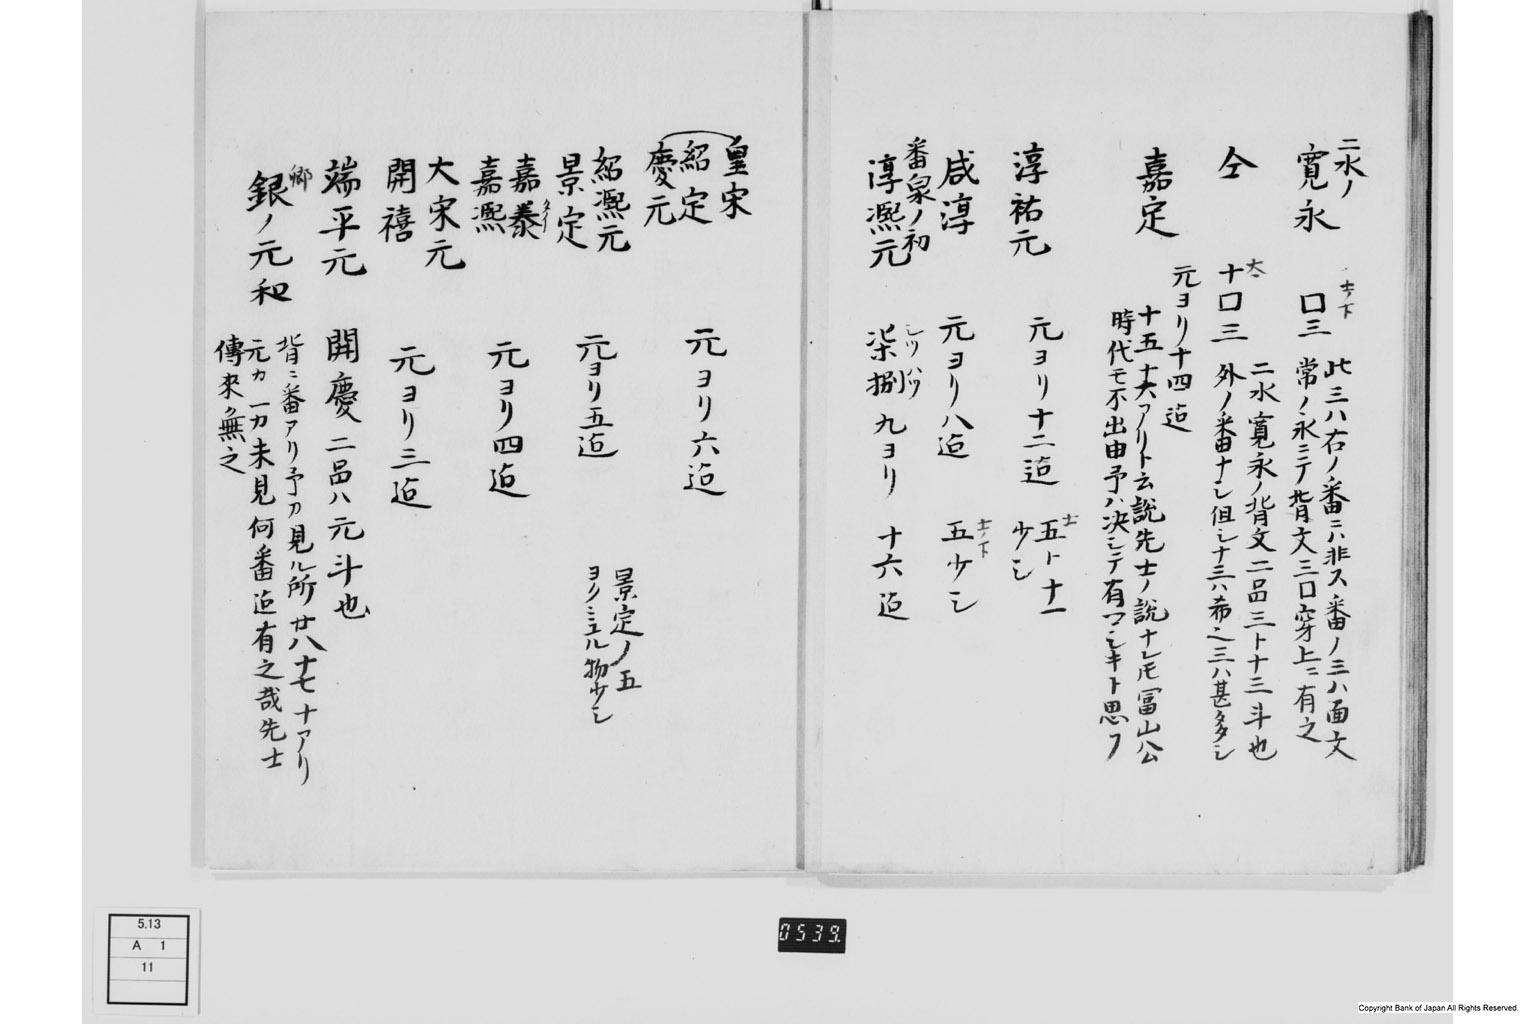 二水ノ
寛永
士ノ下
口三
此三ハ右ノ番ニハ非ス番ノ三ハ面文
常ノ永ニテ背文三口穿上ニ有之
仝
大
十口三
二水寛永ノ背文二品三ト十三斗也
外ノ番ナシ但シ十三ハ希之三ハ甚多シ
嘉定
元ヨリ十四迠
十五十六アリト云説先士ノ説ナレ𪜈冨山公
時代モ不出由予ハ决シテ有マシキト思フ
淳祐元
元ヨリ十二迠
士
五ト十一
少シ
咸淳
元ヨリ八迠
士ノ下
五少シ
番泉ノ初
淳熈元
シツハツ
柒捌九ヨリ
十六迠
皇宋
紹定
慶元
元ヨリ六迠
紹熈元
景定
元ヨリ五迠
景定ノ五
ヨクミユル物少シ
嘉泰
タイ
嘉熈
元ヨリ四迠
大宋元
開禧
元ヨリ三迠
端平元
開慶二品ハ元斗也
郷
銀ノ元和
背ニ番アリ予カ見ル所廿八十七十アリ
元カ一カ未見何番迠有之哉先士
傳来無之
5.13
A 1
11
0539
Copyright Bank of Japan All Rights Reserved.